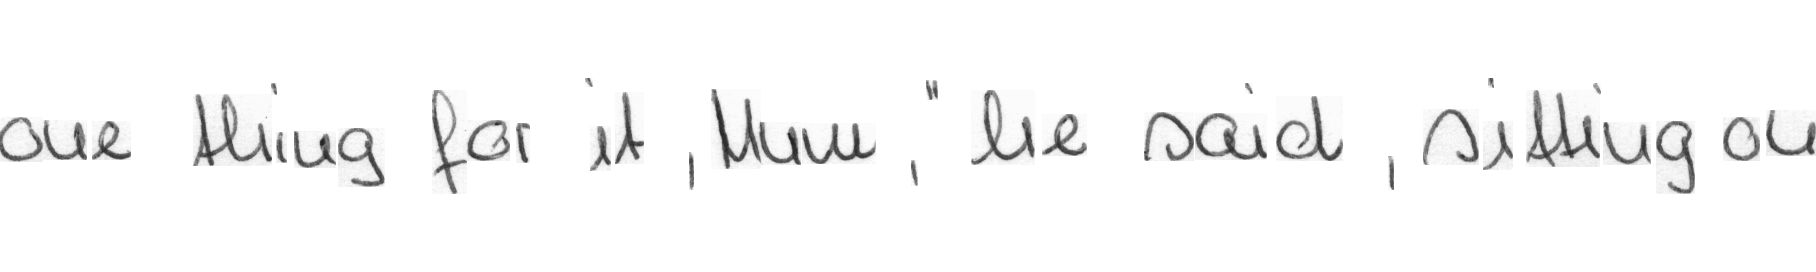 one thing for it , Mum , " he said , sitting on